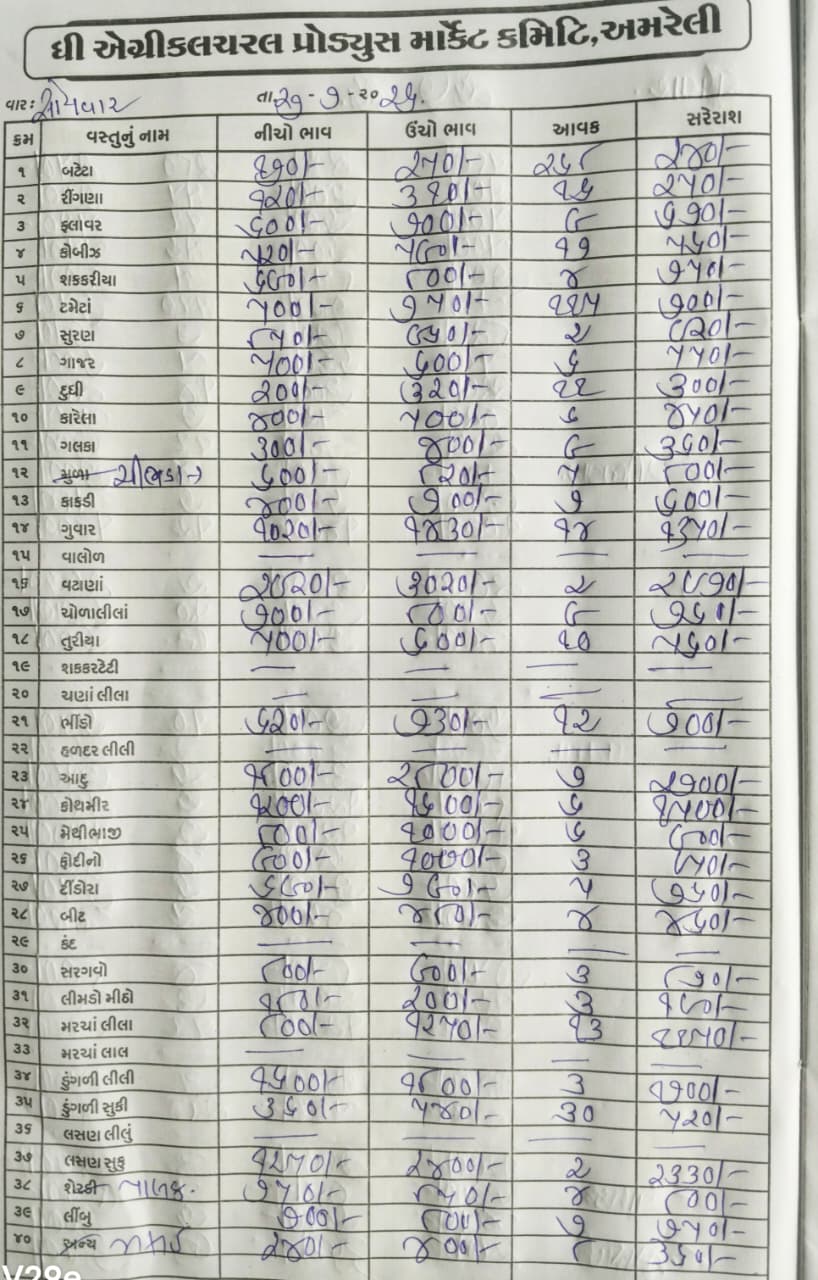 ધી એગ્રીકલચરલ પ્રોડ્યુસ માર્કેટ કમિટિ,અમરેલી
વારઃ સોમવાર તા
ક્રમ વસ્તુનું નામ નીચો ભાવ ઉંચો ભાવ આવક સરેરાશ
૧ બટેટા ૨૭૦/-
૨ રીંગણા ૧૨૦/- ૨૭૦/-
૩ ફ્લાવર ૬૦૦/- ૭૦૦/- ૯
૪ કોબીઝ ૫૨૦/- ૫૯૦/- ૫૬૦/-
૫ શકકરીયા ૬૯૦/- ૮૦૦/- ૪ ૭૫૦/-
૬ ટમેટાં ૫૦૦/- ૭૫૦/- ૭૦૦/-
૭ સુરણ ૮૫૦/- ૯૫૦/- ૨ ૯૨૦/-
૮ ગાજર ૫૦૦/- ૬૦૦/- ૬ ૫૫૦/-
૯ દુધી ૨૦૦/- ૩૨૦/- ૩૦૦/-
૧૦ કારેલા ૪૦૦/- ૫૦૦/- ૬ ૪૫૦/-
૧૧ ગલકા ૩૦૦/- ૪૦૦/- ૯ ૩૬૦/-
૧૨ મુળા ચીભડા→ ૬૦૦/- ૮૨૦/- ૫ ૮૦૦/-
૧૩ કાકડી ૪૦૦/- ૭૦૦/- ૭ ૬૦૦/-
૧૪ ગુવાર ૧૦૨૦/- ૧૪૩૦/- ૧૪ ૧૩૫૦/-
૧૫ વાલોળ — — — —
૧૬ વટાણાં ૨૯૨૦/- ૩૦૨૦/- ૨ ૨૯૭૦/-
૧૭ ચોળાલીલાં ૭૦૦/- ૮૦૦/- ૯ ૭૬૦/-
૧૮ તુરીયા ૫૦૦/- ૬૦૦/- ૧૦ ૫૬૦/-
૧૯ શકકરટેટી — — — —
૨૦ ચણાં લીલા — — — —
૨૧ ભીંડો ૬૨૦/- ૭૩૦/- ૧૨ ૭૦૦/-
૨૨ હળદર લીલી — — — —
૨૩ આદુ ૧૮૦૦/- ૨૮૦૦/- ૭ ૨૭૦૦/-
૨૪ કોથમીર ૧૨૦૦/- ૧૬૦૦/- ૬ ૧૫૦૦/-
૨૫ મેથીભાજી ૮૦૦/- ૧૦૦૦/- ૬ ૯૦૦/-
૨૬ ફોદીનો ૯૦૦/- ૧૦૦૦/- ૩ ૯૫૦/-
૨૭ ટીંડોરા ૬૯૦/- ૭૯૦/- ૫ ૭૬૦/-
૨૮ બીટ ૪૦૦/- ૪૮૦/- ૪ ૪૬૦/-
૨૯ કંદ — — — —
૩૦ સરગવો ૮૦૦/- ૯૦૦/- ૩ ૮૭૦/-
૩૧ લીમડો મીઠો ૧૮૦/- ૨૦૦/- ૩ ૧૯૦/-
૩૨ મરચાં લીલા ૮૦૦/- ૧૨૫૦/- ૧૩ ૧૧૫૦/-
૩૩ મરચાં લાલ — — — —
૩૪ ડુંગળી લીલી ૧૬૦૦/- ૧૮૦૦/- ૩ ૧૭૦૦/-
૩૫ ડુંગળી સુકી ૩૬૦/- ૫૪૦/- ૩૦ ૫૨૦/-
૩૬ લસણ લીલું — — — —
૩૭ લસણ સુકુ ૧૨૫૦/- ૨૪૦૦/- ૨ ૨૩૩૦/-
૩૮ ૭૫૦/- ૮૫૦/- ૪ ૮૦૦/-
૩૯ લીંબુ ૭૦૦/- ૮૦૦/- ૭ ૭૫૦/-
૪૦ અન્ય ૨૪૦/- ૪૦૦/- ૮ ૩૬૦/-